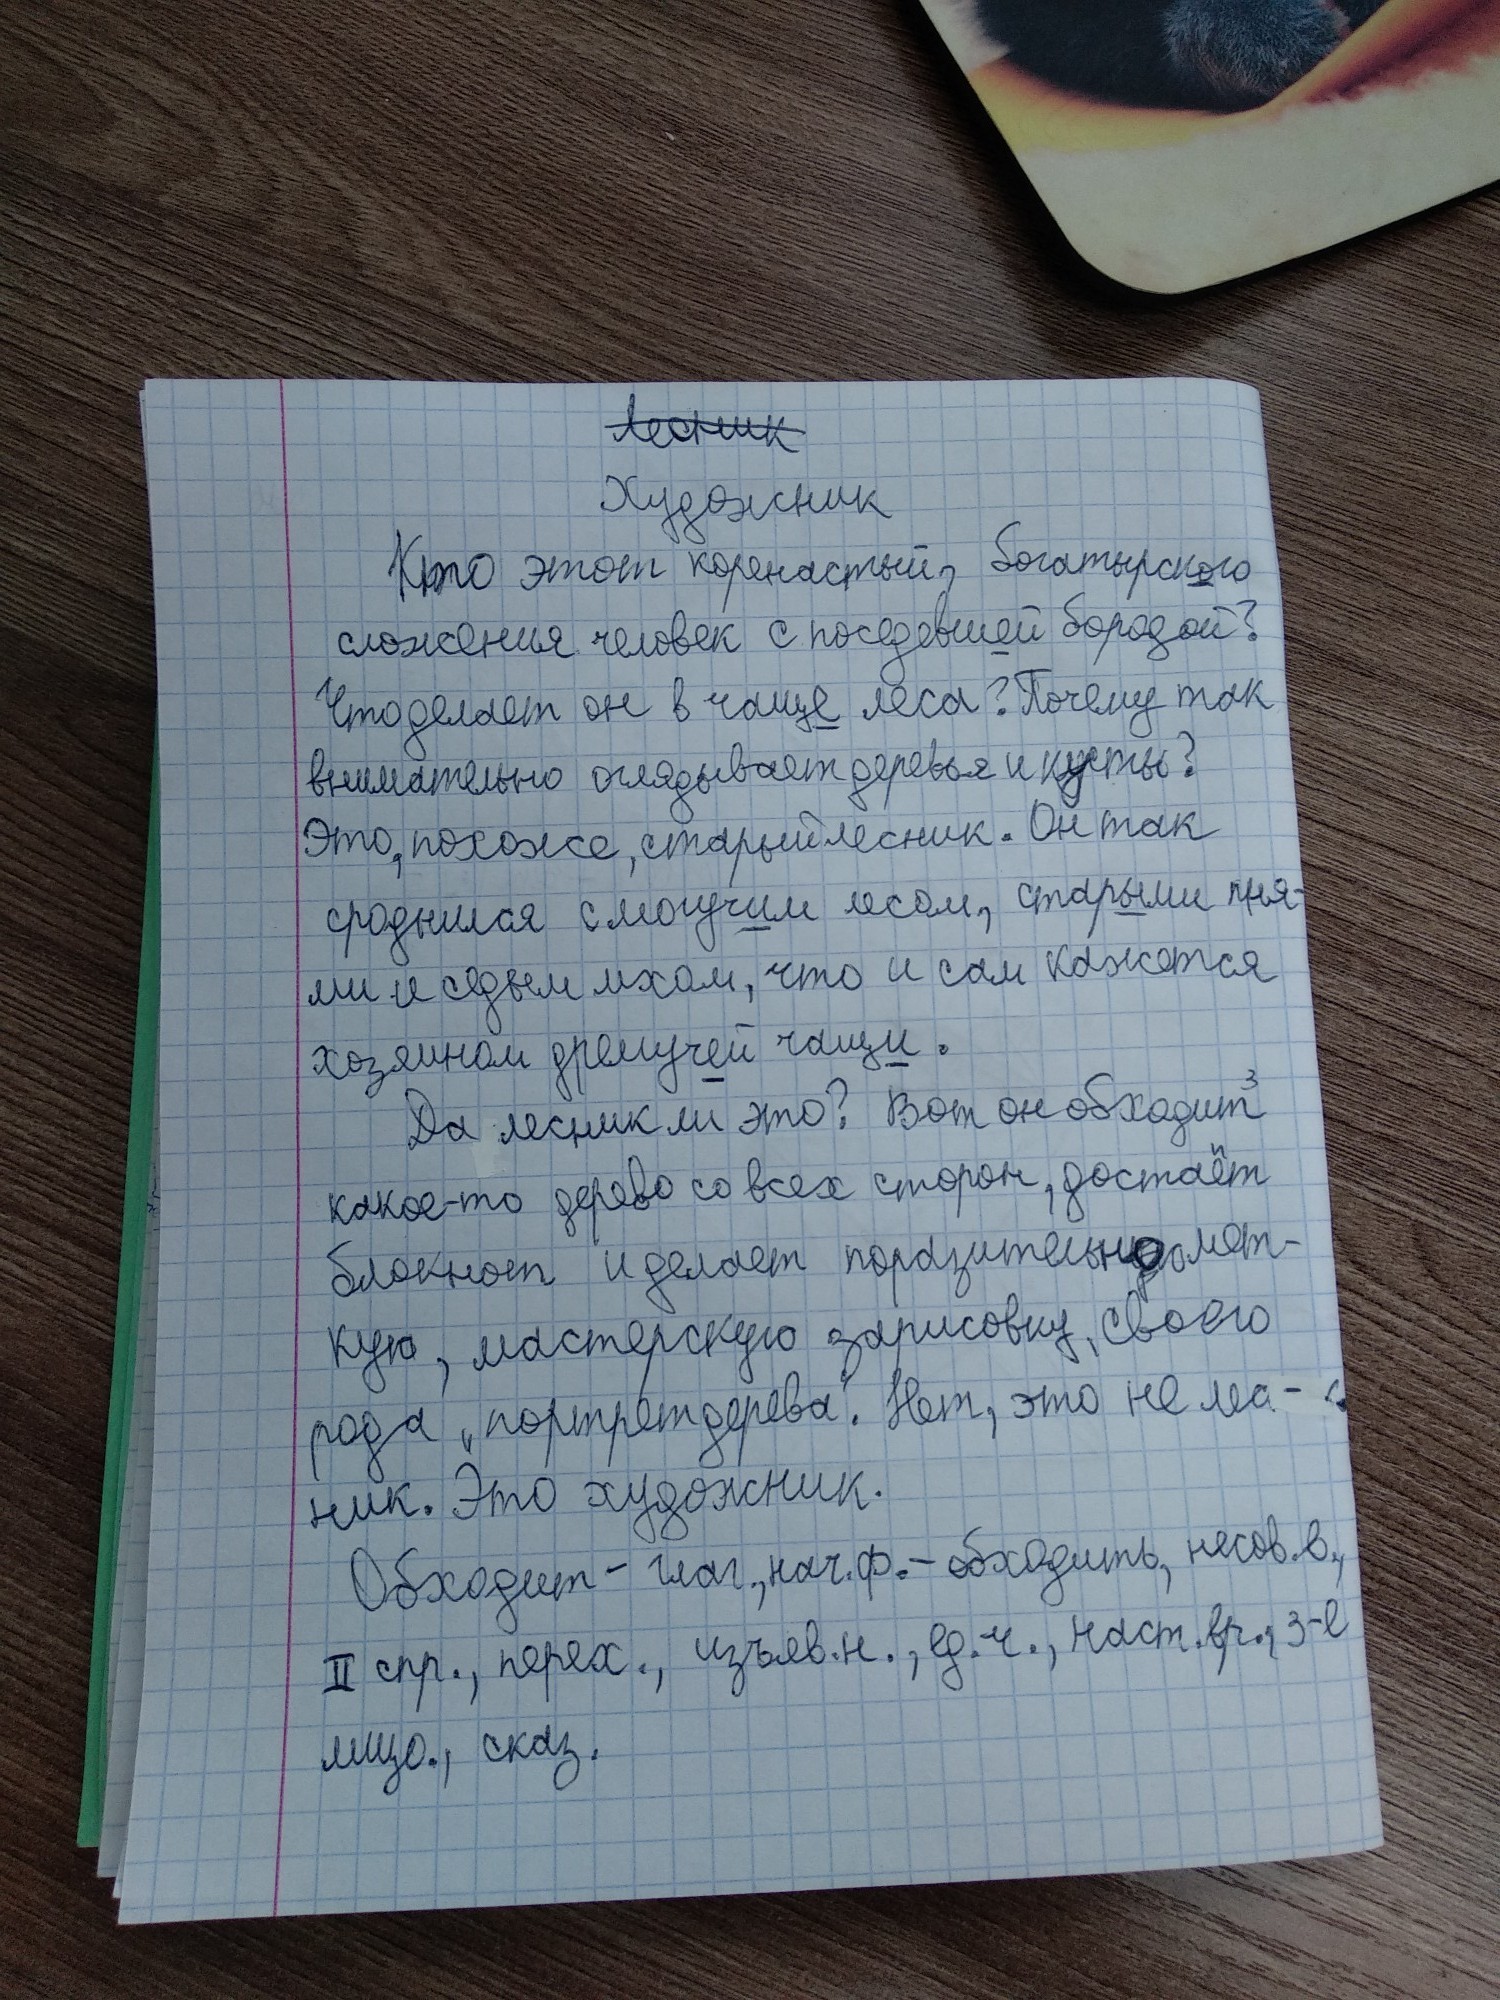 лесник
Художник
Кто этот коренастый, богатырского
сложения человек с поседевшей бородой?
Что делает он в чаще леса? Почему так
внимательно оглядывает деревья и кусты?
Это, похоже, старый лесник. Он так
сроднился с могучим лесом, старыми пня-
ми и седым мхом, что и сам кажется
хозяином дремучей чащи.
Да лесник ли это? Вот он обходит³
какое-то дерево со всех сторон, достаёт
блокнот и делает поразительно мет-
кую, мастерскую зарисовку, своего
рода „портрет дерева". Нет, это не лес-
ник. Это художник.
Обходит - глаг., нач.ф. - обходить, несов.в.,
II спр., перех., изъяв.н., ед.ч., наст.вр., 3-е
лицо., сказ.